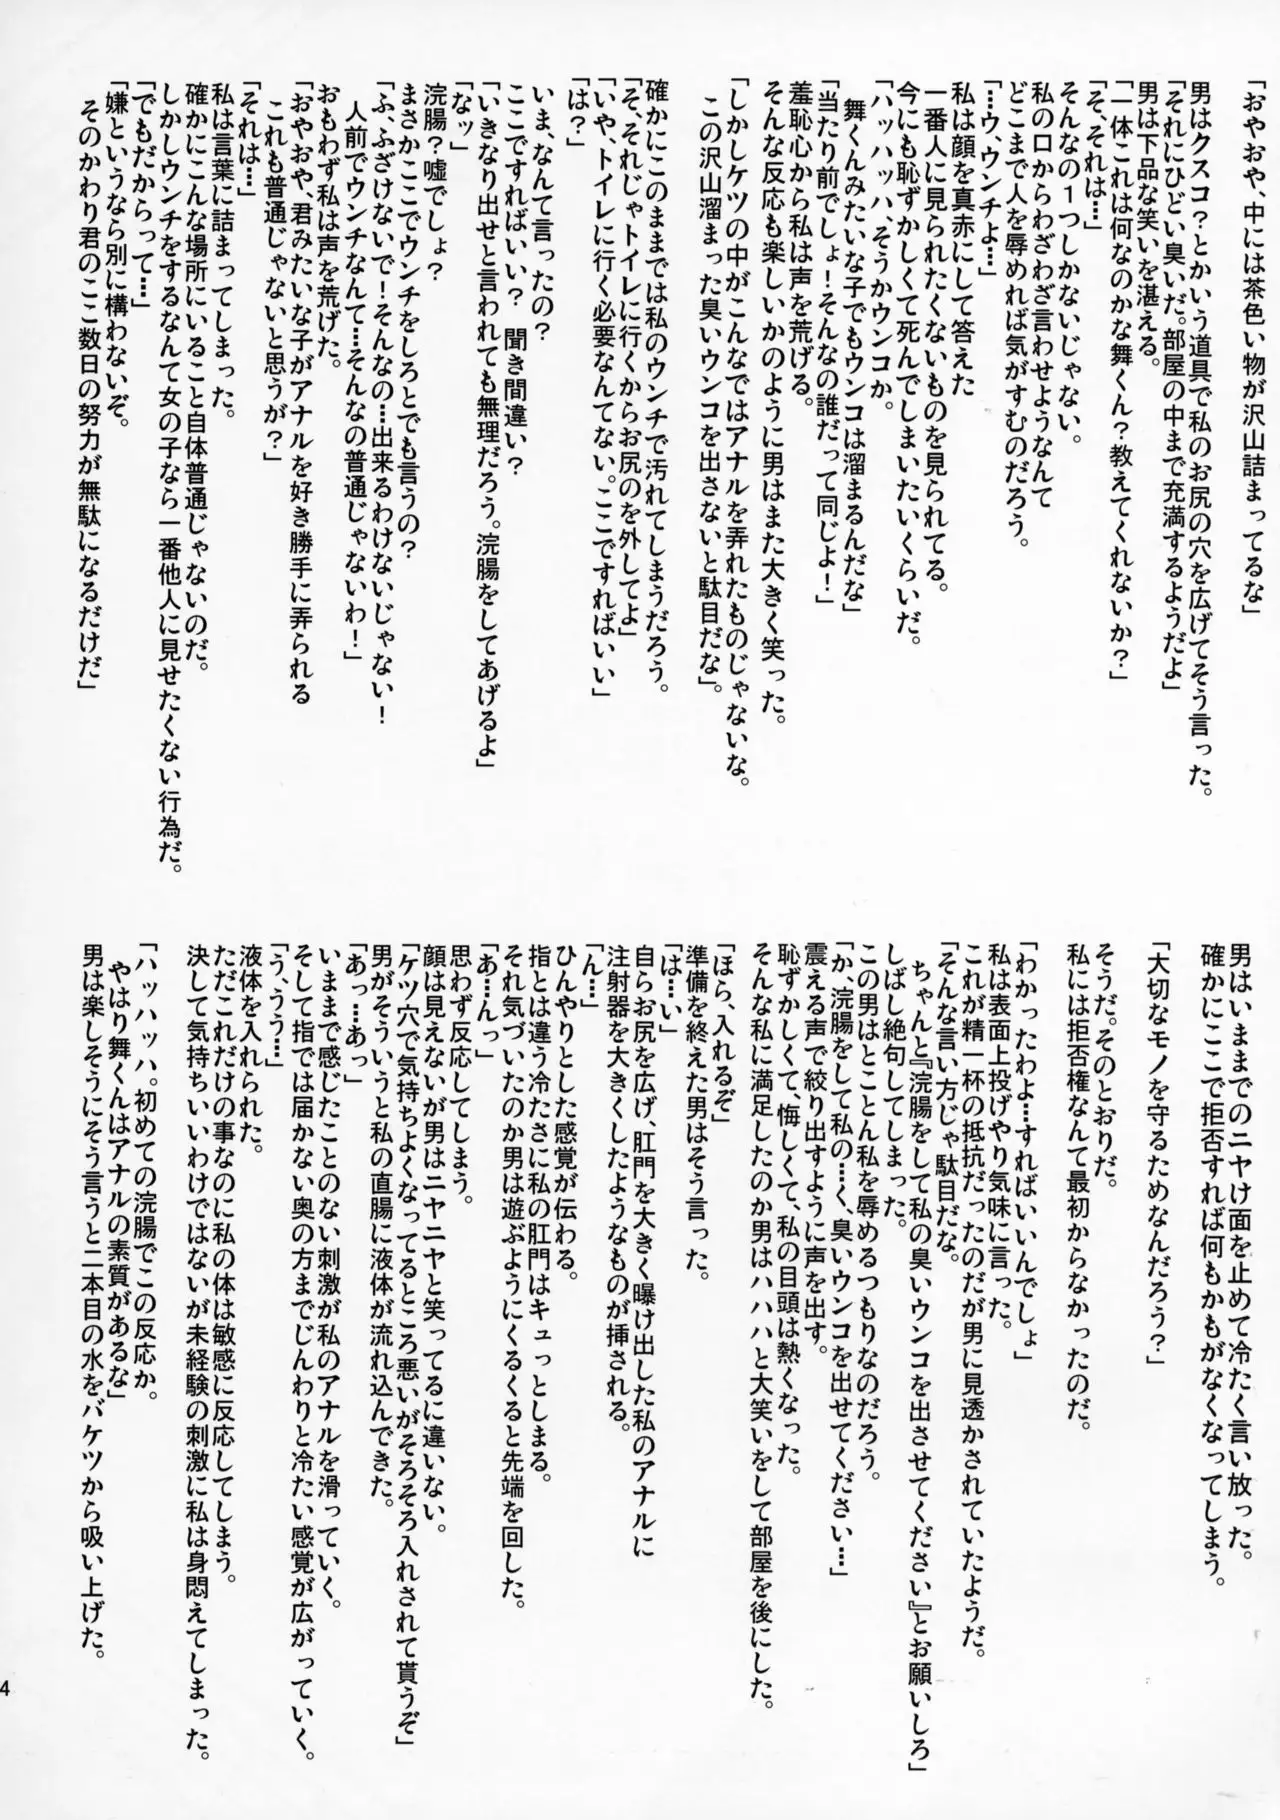 「おやおや、中には茶色い物が沢山詰まってるな」
男はクスコ?とかいう道具で私のお尻の穴を広げてそう言った。
「それにひどい臭いだ。部屋の中まで充満するようだよ」
男は下品な笑いを湛える。
「一体これは何なのかな舞くん?教えてくれないか?」
「そ、それは…」
そんなの1つしかないじゃない。
私の口からわざわざ言わせようなんて
どこまで人を辱めれば気がすむのだろう。
「…ウ、ウンチよ…」
私は顔を真赤にして答えた
一番人に見られたくないものを見られてる。
今にも恥ずかしくて死んでしまいたいくらいだ。
「ハッハッハ、そうかウンコか。
舞くんみたいな子でもウンコは溜まるんだな」
「当たり前でしょ!そんなの誰だって同じよ!」
羞恥心から私は声を荒げる。
そんな反応も楽しいかのように男はまた大きく笑った。
「しかしケツの中がこんなではアナルを弄れたものじゃないな。
この沢山溜まった臭いウンコを出さないと駄目だな」。
確かにこのままでは私のウンチで汚れてしまうだろう。
「そ、それじゃトイレに行くからお尻のを外してよ」
「いや、トイレに行く必要なんてない。ここですればいい」
「は?」
いま、なんて言ったの?
ここですればいい? 聞き間違い?
「いきなり出せと言われても無理だろう。浣腸をしてあげるよ」
「なッ」
浣腸?嘘でしょ?
まさかここでウンチをしろとでも言うの?
「ふ、ふざけないで!そんなの…出来るわけないじゃない!
人前でウンチなんて…そんなの普通じゃないわ!」
おもわず私は声を荒げた。
「おやおや、君みたいな子がアナルを好き勝手に弄られる
これも普通じゃないと思うが?」
「それは…」
私は言葉に詰まってしまった。
確かにこんな場所にいること自体普通じゃないのだ。
しかしウンチをするなんて女の子なら一番他人に見せたくない行為だ。
「でもだからって…」
「嫌というなら別に構わないぞ。
そのかわり君のここ数日の努力が無駄になるだけだ」
男はいままでのニヤけ面を止めて冷たく言い放った。
確かにここで拒否すれば何もかもがなくなってしまう。
「大切なモノを守るためなんだろう?」
そうだ。そのとおりだ。
私には拒否権なんて最初からなかったのだ。
「わかったわよ…すればいいんでしょ」
私は表面上投げやり気味に言った。
これが精一杯の抵抗だったのだが男に見透かされていたようだ。
「そんな言い方じゃ駄目だな。
ちゃんと『浣腸をして私の臭いウンコを出させてください』とお願いしろ」
しばし絶句してしまった。
この男はとことん私を辱めるつもりなのだろう。
「か、浣腸をして私の…く、臭いウンコを出せてください…」
震える声で絞り出すように声を出す。
恥ずかしくて、悔しくて、私の目頭は熱くなった。
そんな私に満足したのか男はハハハと大笑いをして部屋を後にした。
「ほら、入れるぞ」
準備を終えた男はそう言った。
「は…い」
自らお尻を広げ、肛門を大きく曝け出した私のアナルに
注射器を大きくしたようなものが挿される。
「ん…」
ひんやりとした感覚が伝わる。
指とは違う冷たさに私の肛門はキュっとしまる。
それ気づいたのか男は遊ぶようにくるくると先端を回した。
「あ…んっ」
思わず反応してしまう。
顔は見えないが男はニヤニヤと笑ってるに違いない。
「ケツ穴で気持ちよくなってるところ悪いがそろそろ入れされて貰うぞ」
男がそういうと私の直腸に液体が流れ込んできた。
「あっ…あっ」
いままで感じたことのない刺激が私のアナルを滑っていく。
そして指では届かない奥の方までじんわりと冷たい感覚が広がっていく。
「う、うう…」
液体を入れられた。
ただこれだけの事なのに私の体は敏感に反応してしまう。
決して気持ちいいわけではないが未経験の刺激に私は身悶えてしまった。
「ハッハッハ。初めての浣腸でこの反応か。
やはり舞くんはアナルの素質があるな」
男は楽しそうにそう言うと二本目の水をバケツから吸い上げた。
4